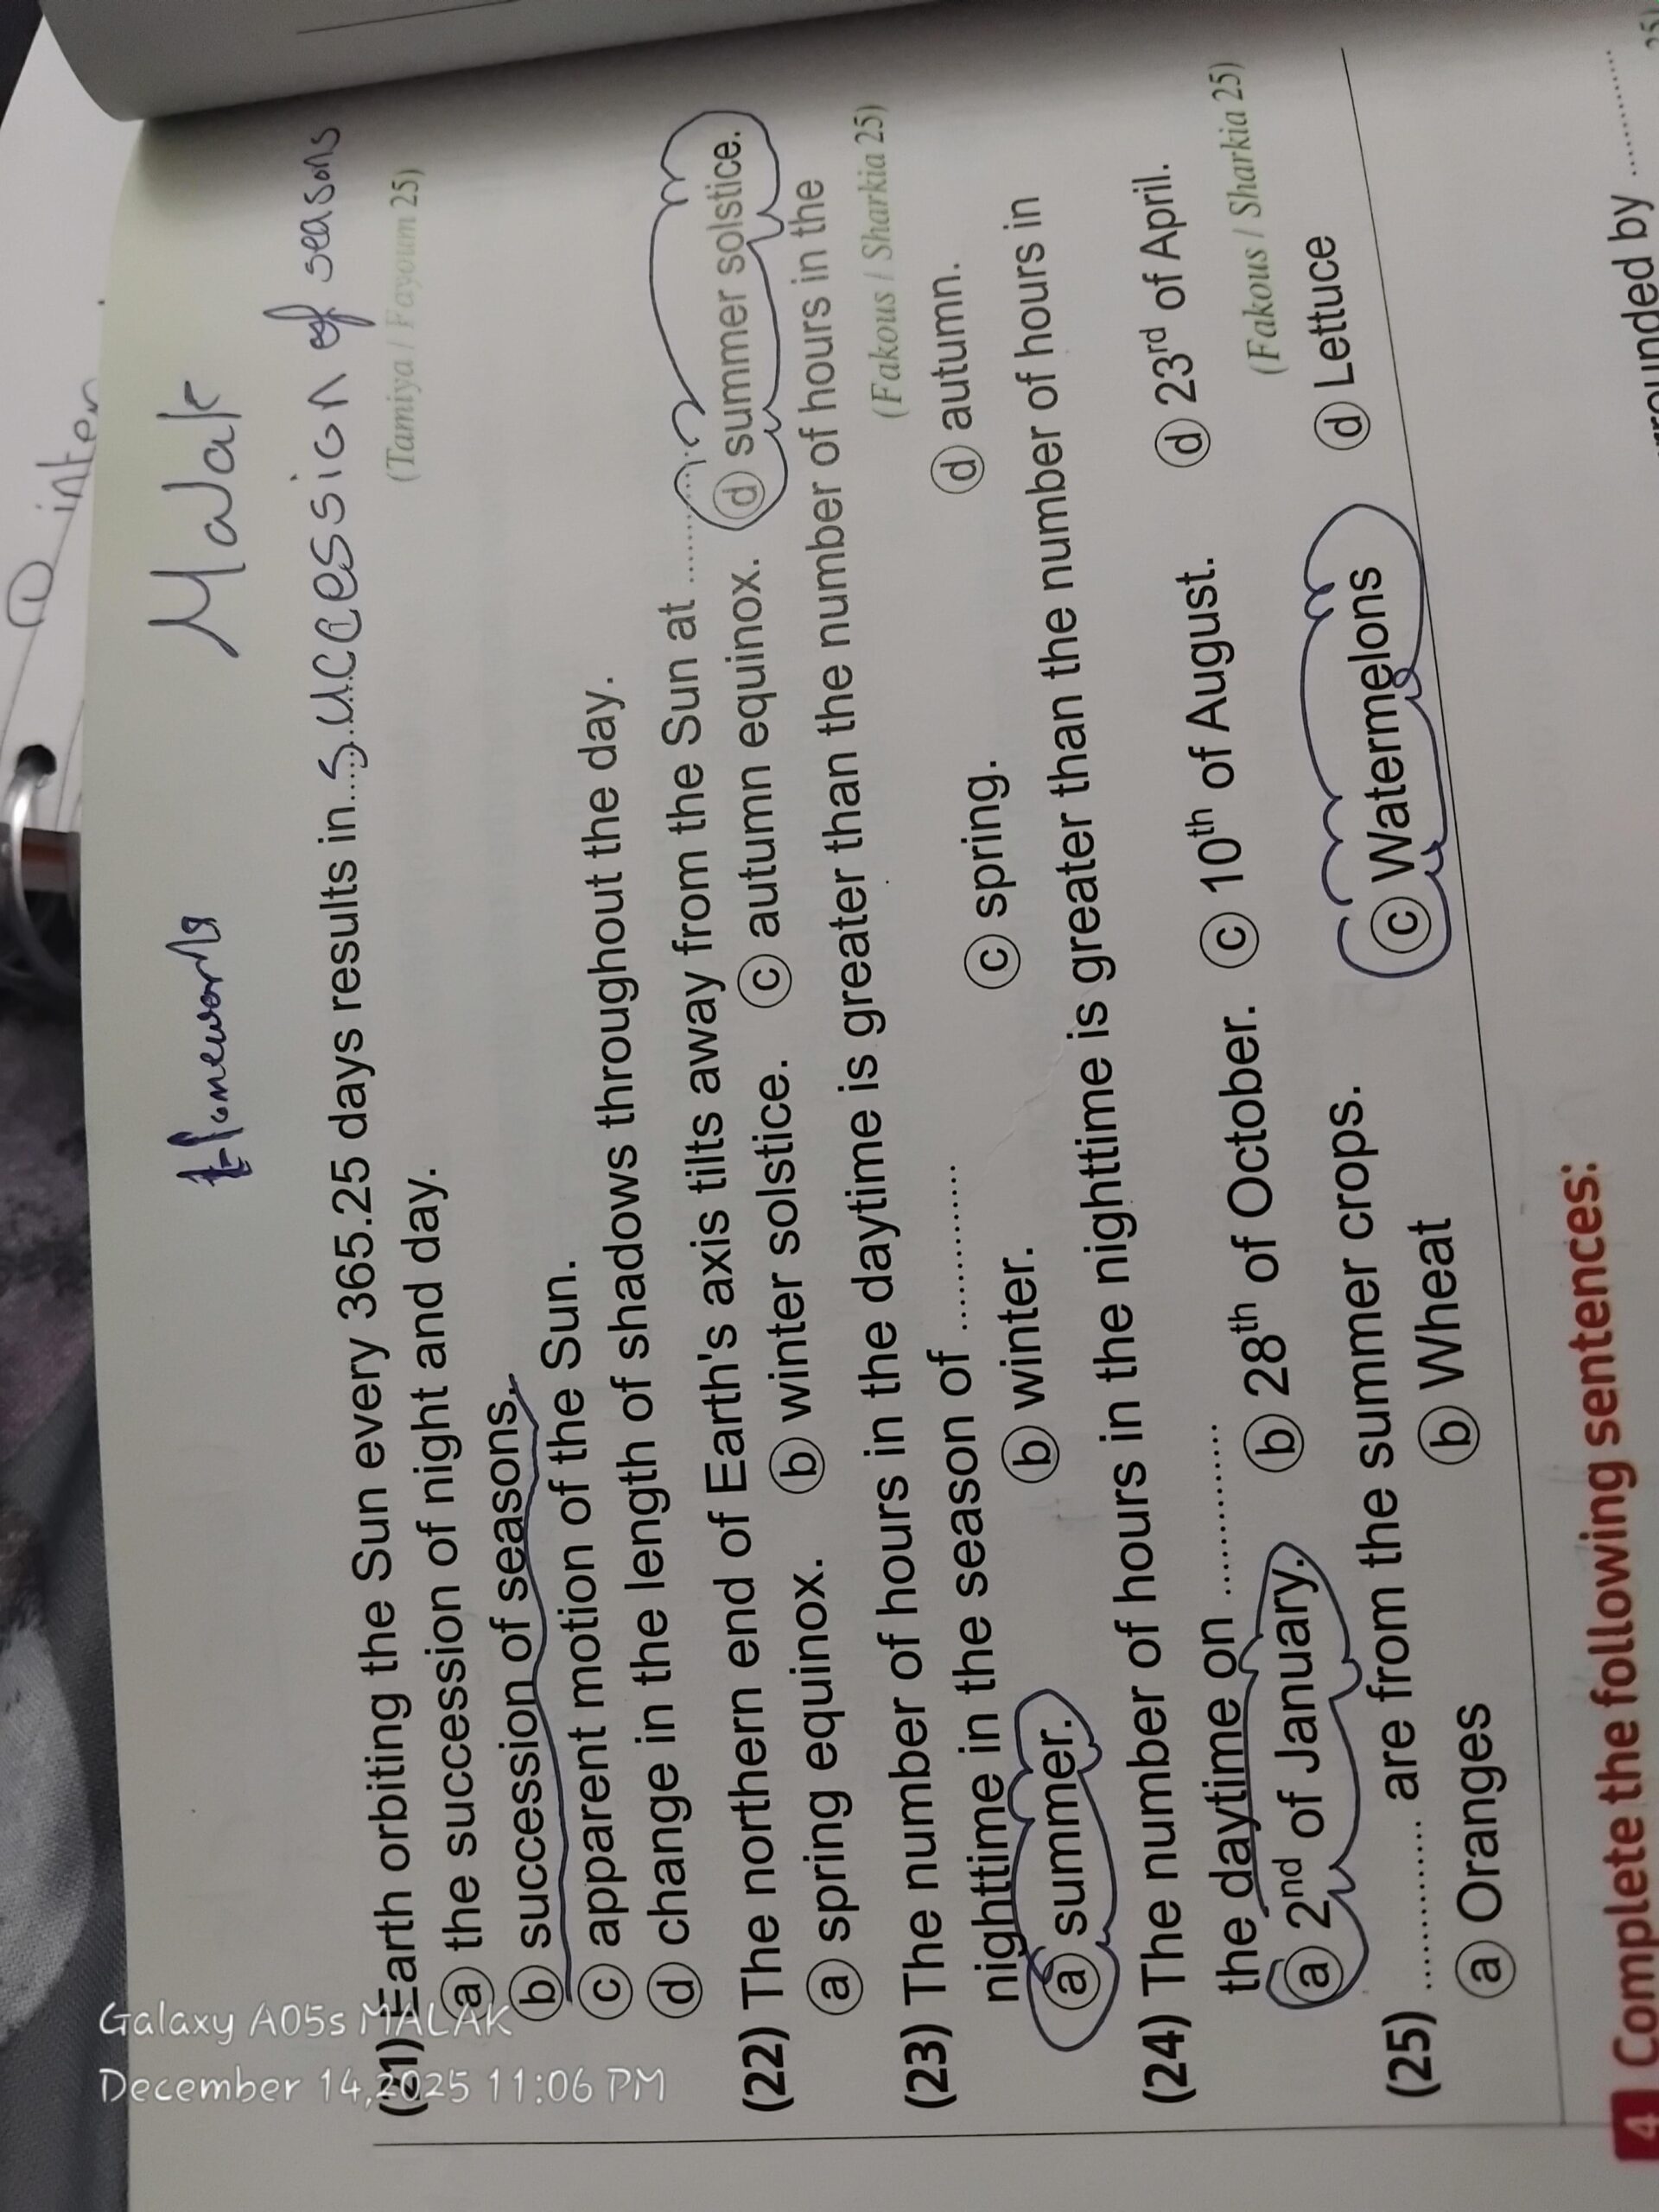 ① inter
Homework Malak
(21) Earth orbiting the Sun every 365.25 days results in..succession of seasons
(Tamiya / Fayoum 25)
ⓐ the succession of night and day.
ⓑ succession of seasons.
ⓒ apparent motion of the Sun.
ⓓ change in the length of shadows throughout the day.
(22) The northern end of Earth's axis tilts away from the Sun at ............
ⓐ spring equinox. ⓑ winter solstice. ⓒ autumn equinox. ⓓ summer solstice.
(23) The number of hours in the daytime is greater than the number of hours in the
nighttime in the season of ............ (Fakous / Sharkia 25)
ⓐ summer. ⓑ winter. ⓒ spring. ⓓ autumn.
(24) The number of hours in the nighttime is greater than the number of hours in
the daytime on ............
ⓐ 2nd of January. ⓑ 28th of October. ⓒ 10th of August. ⓓ 23rd of April.
(25) ............ are from the summer crops. (Fakous / Sharkia 25)
ⓐ Oranges ⓑ Wheat ⓒ Watermelons ⓓ Lettuce
4 Complete the following sentences:
by ............
Galaxy A05s MALAK
December 14,2025 11:06 PM